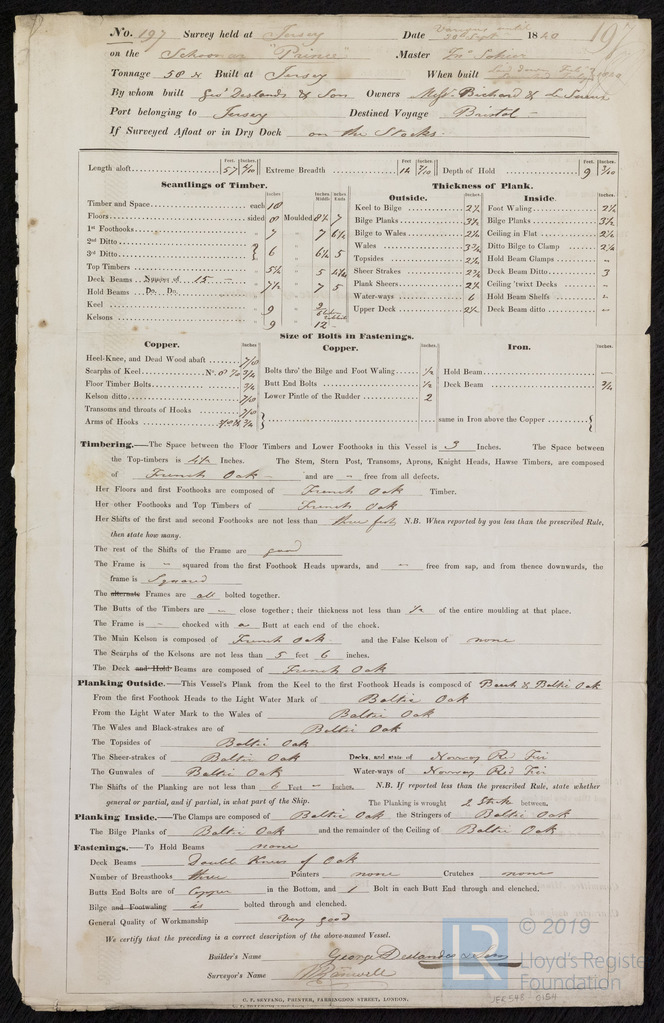 No. 197 Survey held at Jersey Date Various until 28th Sept 1840 197
on the Schooner "Prince" Master Jno
Tonnage 58 Built at Jersey When built
By whom built Geo Deslandes & Son Owners Messrs Bichard & Le Sueur
Port belonging to Jersey Destined Voyage Bristol
If Surveyed Afloat or in Dry Dock on the Stocks.
Feet. Inches. Feet. Inches. Feet. Inches.
Length aloft 57 Extreme Breadth Depth of Hold 9
Scantlings of Timber. Thickness of Plank.
Inches Inches Middle Inches Ends Outside. Inches Inside. Inches
Timber and Space each 18 Keel to Bilge 2½ Foot Waling 2½
Floors sided 8 Moulded 8½ 7 Bilge Planks 3½ Bilge Planks 3½
1st Foothooks 7 7 6½ Bilge to Wales 2½ Ceiling in Flat 2¼
2nd Ditto Wales Ditto Bilge to Clamp 2¼
3rd Ditto 6 6½ 5 Topsides 2½ Hold Beam Clamps "
Top Timbers 5½ 5 4½ Sheer Strakes Deck Beam Ditto 3
Deck Beams Number of 15 Plank Sheers 2½ Ceiling 'twixt Decks "
Hold Beams Do. Do. 7½ 7 5 Water-ways 6 Hold Beam Shelfs "
Keel 9 Upper Deck 2½ Deck Beam ditto "
Kelsons 9 12
Size of Bolts in Fastenings.
Copper. Inches Copper. Inches Iron. Inches
Heel-Knee, and Dead Wood abaft 7/10
Scarphs of Keel No. 8 Bolts thro' the Bilge and Foot Waling ½ Hold Beam —
Floor Timber Bolts ¾ Butt End Bolts ½ Deck Beam ¾
Kelson ditto 7/10 Lower Pintle of the Rudder 2
Transoms and throats of Hooks 7/10
Arms of Hooks same in Iron above the Copper
Timbering.—The Space between the Floor Timbers and Lower Foothooks in this Vessel is 3 Inches. The Space between
the Top-timbers is 4½ Inches. The Stem, Stern Post, Transoms, Aprons, Knight Heads, Hawse Timbers, are composed
of French Oak and are " free from all defects.
Her Floors and first Foothooks are composed of French Oak Timber.
Her other Foothooks and Top Timbers of French Oak
Her Shifts of the first and second Foothooks are not less than three feet N.B. When reported by you less than the prescribed Rule,
then state how many.
The rest of the Shifts of the Frame are good
The Frame is " squared from the first Foothook Heads upwards, and " free from sap, and from thence downwards, the
frame is Squared
The alternate Frames are all bolted together.
The Butts of the Timbers are " close together; their thickness not less than ⅓ of the entire moulding at that place.
The Frame is " chocked with a Butt at each end of the chock.
The Main Kelson is composed of French Oak and the False Kelson of none
The Scarphs of the Kelsons are not less than 5 feet 6 inches.
The Deck and Hold Beams are composed of French Oak
Planking Outside.—This Vessel's Plank from the Keel to the first Foothook Heads is composed of Beech & Baltic Oak
From the first Foothook Heads to the Light Water Mark of Baltic Oak
From the Light Water Mark to the Wales of Baltic Oak
The Wales and Black-strakes are of Baltic Oak
The Topsides of Baltic Oak
The Sheer-strakes of Baltic Oak Decks, and state of Norway Red Fir
The Gunwales of Baltic Oak Water-ways of Norway Red Fir
The Shifts of the Planking are not less than 6 Feet " Inches. N.B. If reported less than the prescribed Rule, state whether
general or partial, and if partial, in what part of the Ship. The Planking is wrought 2 Strk between.
Planking Inside.—The Clamps are composed of Baltic Oak the Stringers of Baltic Oak
The Bilge Planks of Baltic Oak and the remainder of the Ceiling of Baltic Oak
Fastenings.—To Hold Beams none
Deck Beams Double Knees of Oak
Number of Breasthooks three Pointers none Crutches none
Butts End Bolts are of Copper in the Bottom, and 1 Bolt in each Butt End through and clenched.
Bilge and Footwaling is bolted through and clenched.
General Quality of Workmanship very good
We certify that the preceding is a correct description of the above-named Vessel.
Builder's Name George Deslandes & Son
Surveyor's Name
C. F. SEYFANG, PRINTER, FARRINGDON STREET, LONDON.
LR © 2019
Lloyd's Register
Foundation
JER548-0154